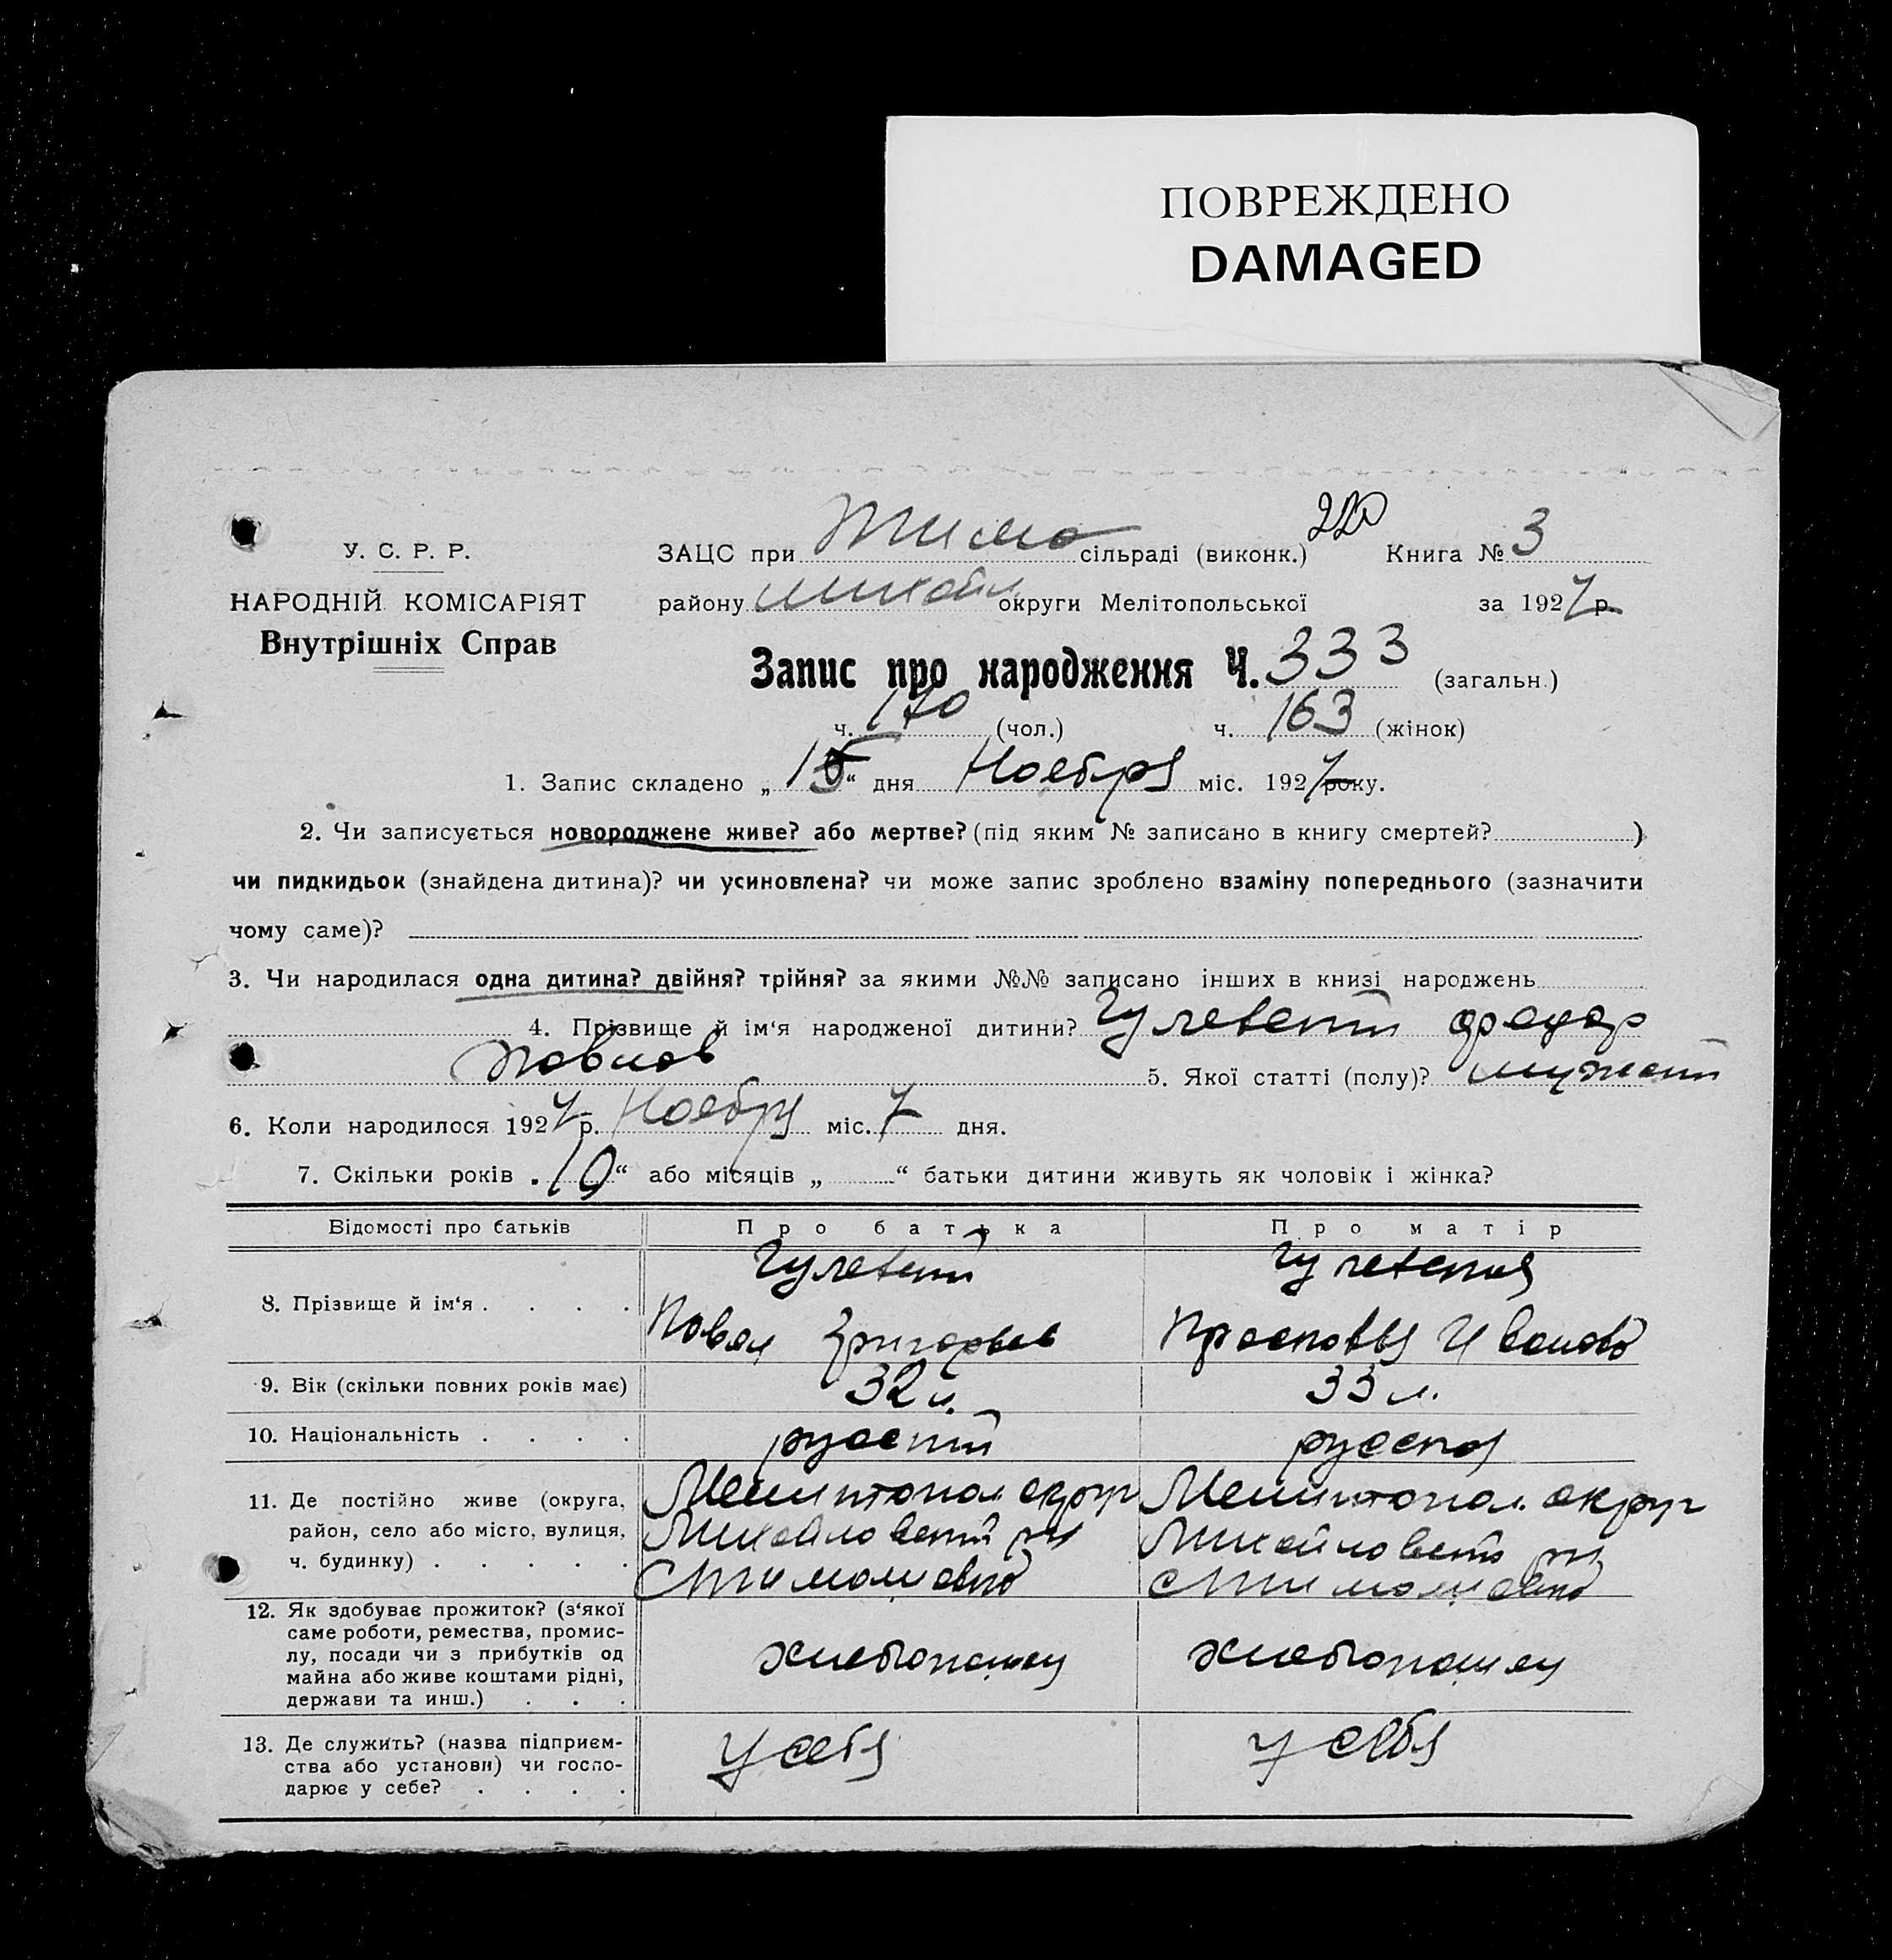 ПОВРЕЖДЕНО
DAMAGED
У. С. Р. Р.
НАРОДНІЙ КОМІСАРІЯТ
Внутрішніх Справ
ЗАЦС при Тимо сільраді (виконк.) Книга № 3
району Михайл округи Мелітопольської за 1927 р.
Запис про народження Ч. 333 (загальн.)
ч. 170 (чол.) ч. 163 (жінок)
1. Запис складено „15“ дня Ноебря міс. 1927 року.
2. Чи записується новороджене живе? або мертве? (під яким № записано в книгу смертей? )
чи пидкидьок (знайдена дитина)? чи усиновлена? чи може запис зроблено взаміну попереднього (зазначити
чому саме)?
3. Чи народилася одна дитина? двійня? трійня? за якими №№ записано інших в книзі народжень
4. Прізвище й ім‘я народженої дитини? Гулевский
Павлов 5. Якої статті (полу)? мужской
6. Коли народилося 1927 р. Ноебря міс. 7 дня.
7. Скільки років „10“ або місяців „ “ батьки дитини живуть як чоловік і жінка?
Відомості про батьків Про батька Про матір
8. Прізвище й ім‘я . . . . Гулевский Гулевская
Павел Григорьев Прасковья Иванова
9. Вік (скільки повних років має) 32 л. 33 л.
10. Національність . . . . русский русская
11. Де постійно живе (округа, район, село або місто, вулиця, ч. будинку) . . . . . Мелитопол округ Мелитопол. округ
Михайловский рн Михайловский рн
С Тимошовка С Тимошовка
12. Як здобуває прожиток? (з‘якої
саме роботи, ремества, промис-
лу, посади чи з прибутків од
майна або живе коштами рідні,
держави та инш.) . . . хлебопашец хлебопашец
13. Де служить? (назва підприєм-
ства або установи) чи госпо-
дарює у себе? . . . . у себя у себя